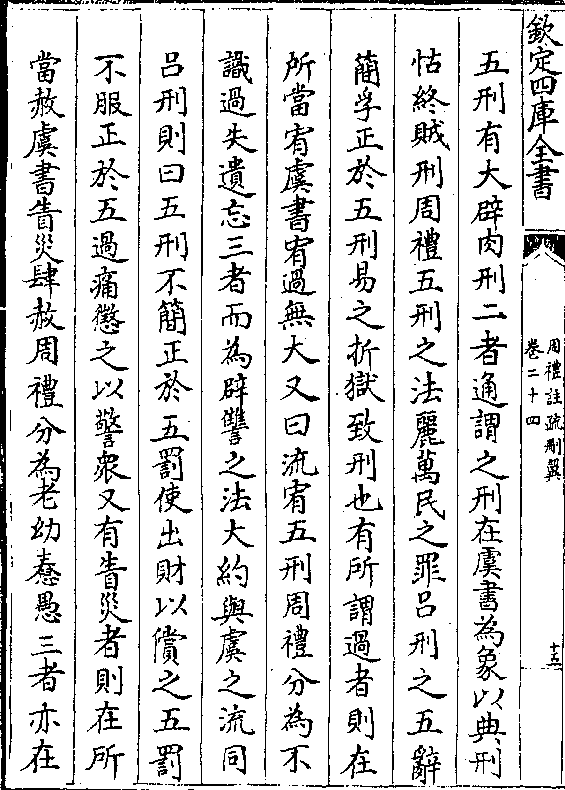 欽定四庫全書
周禮註疏刪翼
卷二十四
十五
五刑有大辟肉刑二者通謂之刑在虞書為象以典刑
怙終賊刑周禮五刑之法麗萬民之罪吕刑之五辭
簡孚正於五刑易之折獄致刑也有所謂過者則在
所當宥虞書宥過無大又曰流宥五刑周禮分為不
識過失遺忘三者而為辟讐之法大約與虞之流同
吕刑則曰五刑不簡正於五罰使出財以償之五罰
不服正於五過痛懲之以警衆又有眚災者則在所
當赦虞書眚災肆赦周禮分為老幼惷愚三者亦在